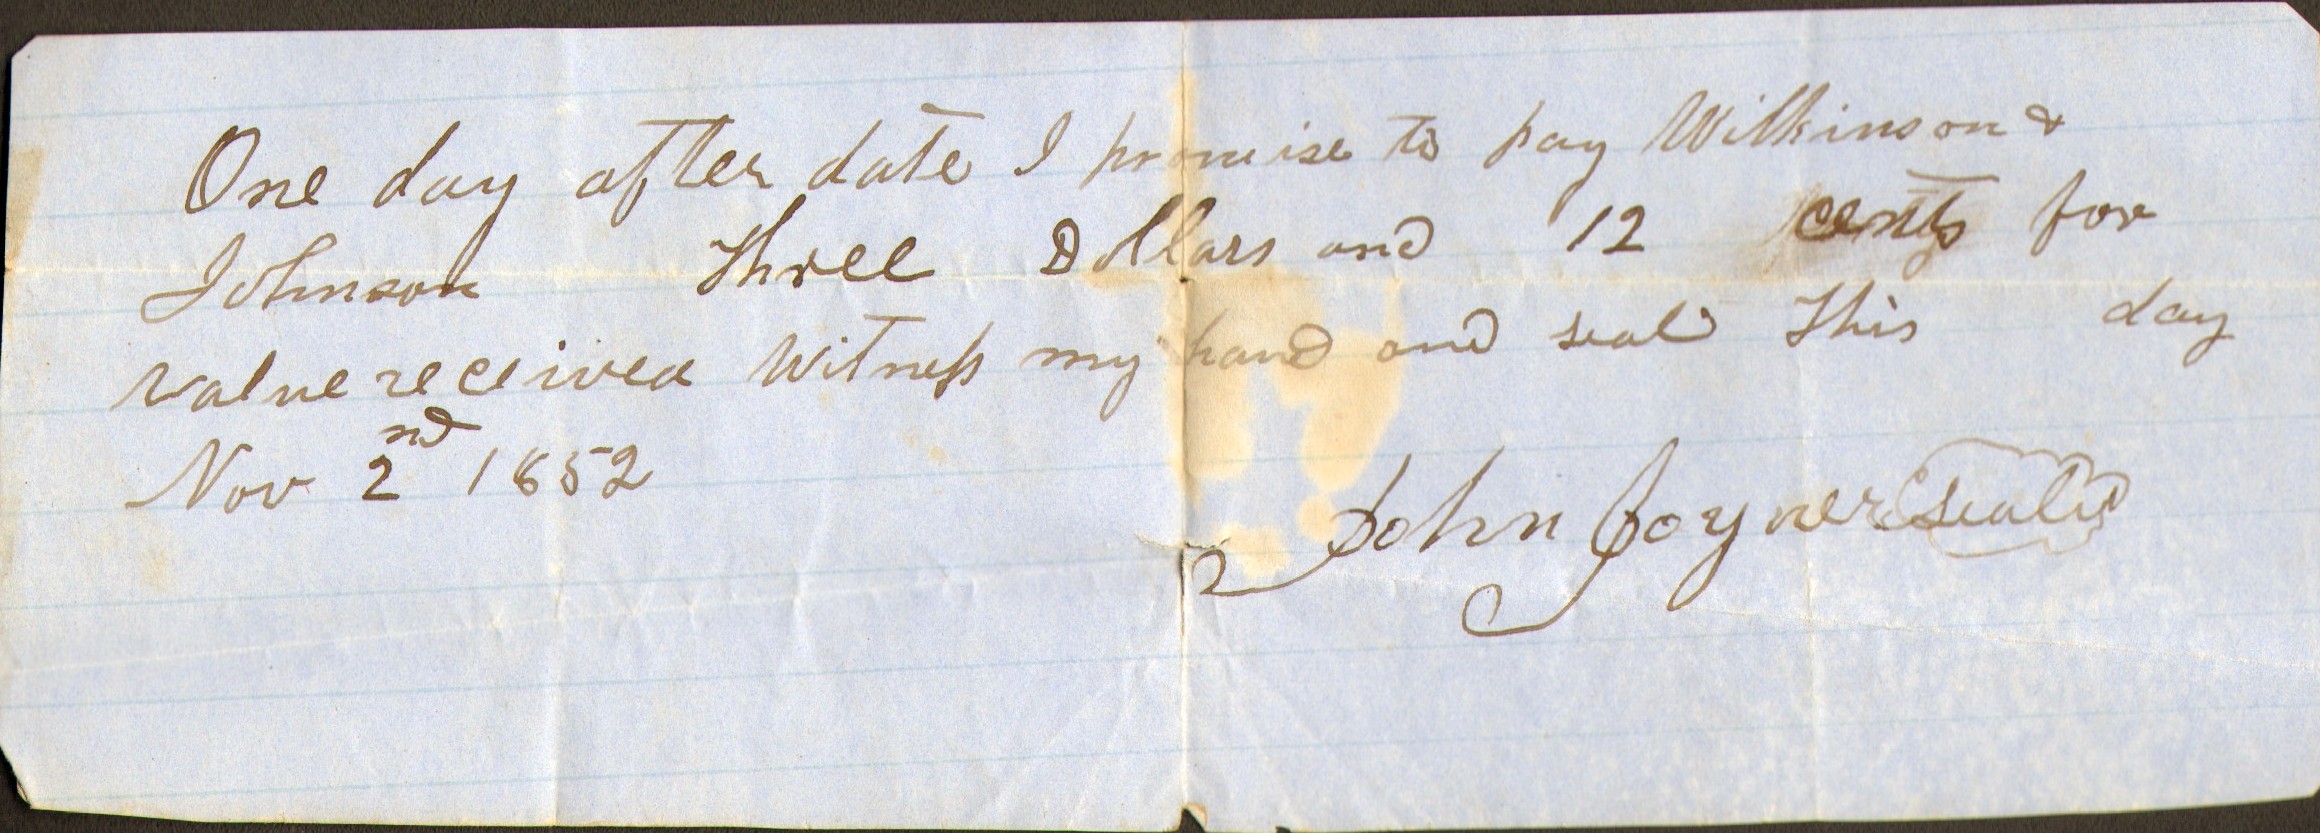 One day after date I promise to pay Wilkinson &
Johnson Three Dollars and 12 cents for
value received Witness my hand and seal This day
Nov 2nd 1852
John Joyner (seal)